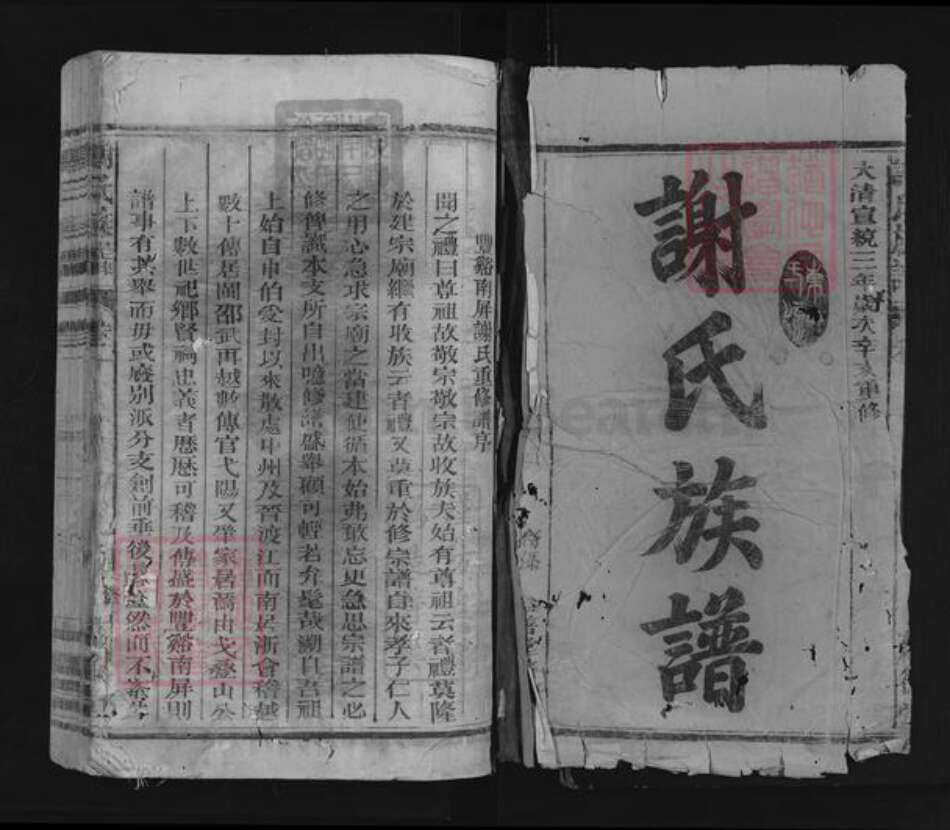 大清宣統三年歲次辛亥重修
謝氏族譜
豐谿南屏謝氏重修譜序
聞之禮曰尊祖故敬宗敬宗故收族夫始有尊祖云者禮莫隆
於建宗廟繼有收族云者禮又莫重於修宗譜自來孝子仁人
之用心急求宗廟之當建使循本始弗敢忘更急思宗譜之必
修俾識本支所自出噫修譜盛舉顧可暫者弁髦哉溯自吾祖
上始自申伯受封以來散處中州及晉渡江而南居浙會稽越
數十傳居閩邵武再越數傳官弋陽又肇家居焉由弋疊山公
上下數世祀鄉賢祠忠義者歷歷可稽及傳盛於豐谿南屏則
譜事有其舉而毋或廢別派分支創前垂後意
然而不